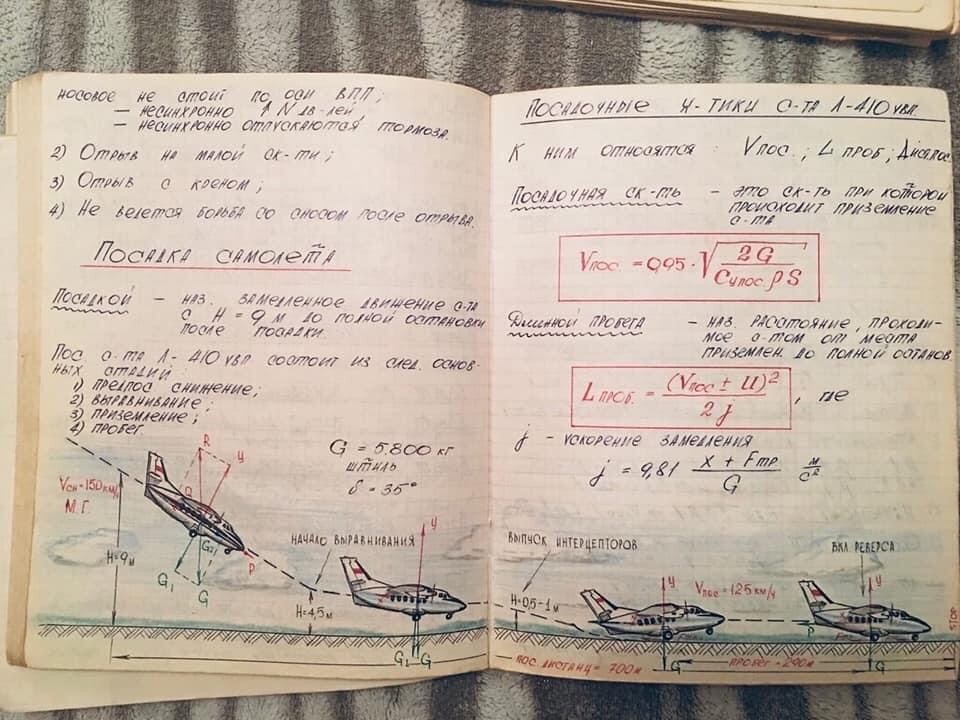 носовое не стоит по оси ВПП;
– несинхронно ↑ N дв-лей;
– несинхронно отпускаются тормоза.
2) Отрыв на малой ск-ти;
3) Отрыв с креном;
4) Не ведется борьба со сносом после отрыва.
Посадка самолета
Посадкой – наз. замедленное движение с-та
с H = 9 м до полной остановки
после посадки.
Пос. с-та Л-410 увп состоит из след. основ-
ных стадий:
1) предпос снижение;
2) выравнивание;
3) приземление;
4) пробег.
G = 5.800 кг
штиль
δ = 35°
Vсн = 150 км/ч
М.Г.
R
У
Q
G2
G1
G
P
H=9м
начало выравнивания
H=4,5м
У
G1 G
Посадочные х-тики с-та Л-410 увп.
К ним относятся: Vпос.; L проб.;
Посадочная ск-ть – это ск-ть при которой
происходит приземление
с-та
Vпос. = 0,95 · √ 2G / Cупос. ρ S
Длинной пробега – наз. расстояние, проходи-
мое с-том от места
приземлен. до полной останов
L проб. = (Vпос ± U)² / 2 j , где
j – ускорение замедления
j = 9,81 X + Fтр / G м/с²
выпуск интерцепторов
вкл реверса
H=0,5-1 м
У
Vпос = 125 км/ч
У
P
Fтр
Fтр
G
G
STOP
пос. дистанц = 700м
пробег = 290м